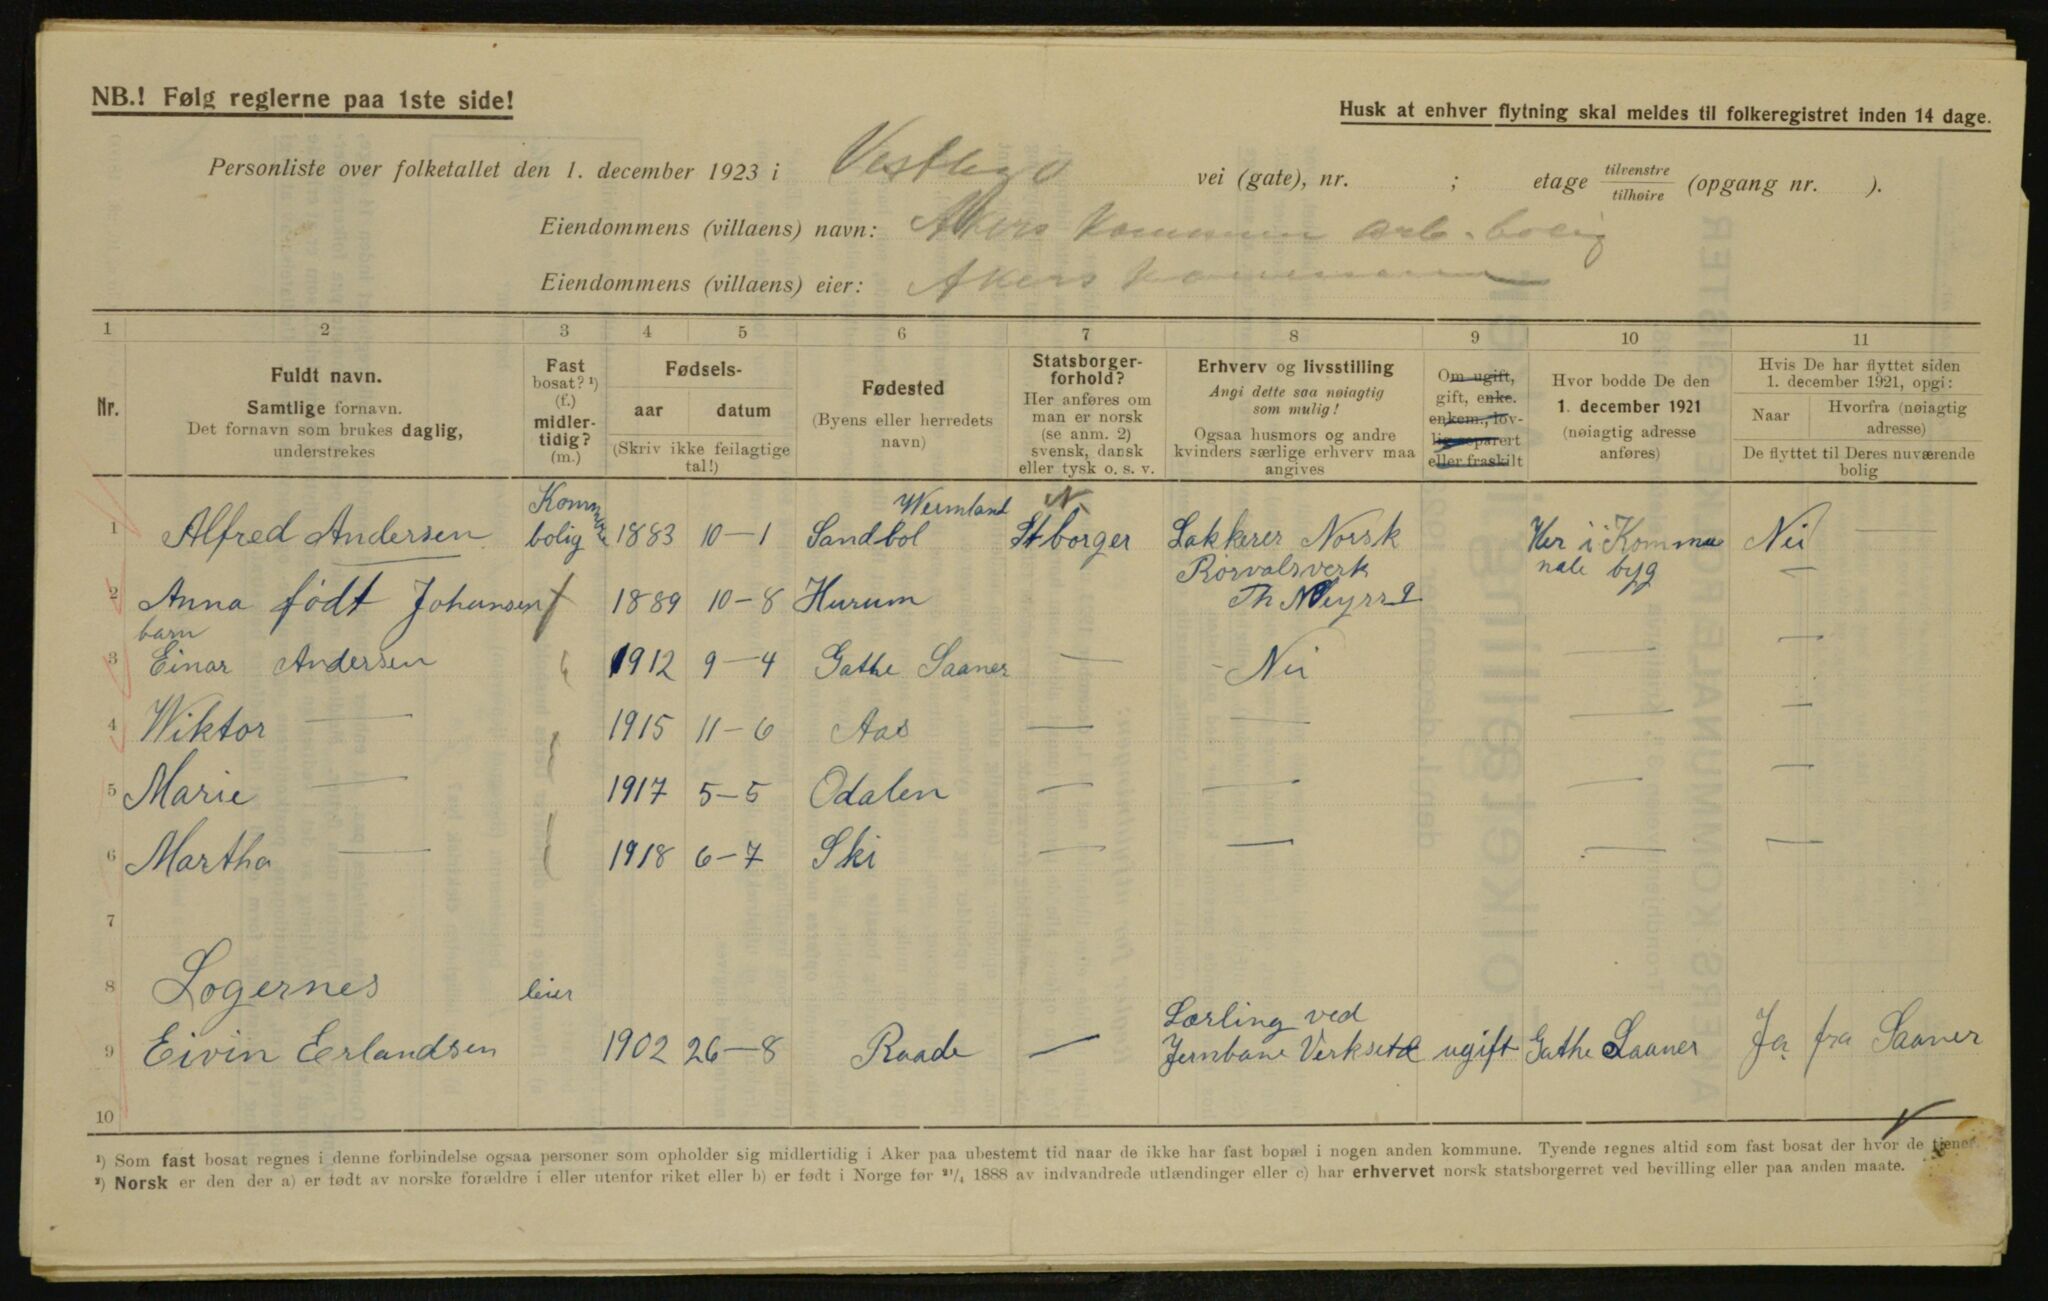 NB.! Følg reglerne paa 1ste side!
Husk at enhver flytning skal meldes til folkeregistret inden 14 dage.
Personliste over folketallet den 1. december 1923 i vei (gate), nr. ; etage tilvenstre tilhøire (opgang nr. ).
Eiendommens (villaens) navn: Akers Kommun Arb. bolig
Eiendommens (villaens) eier: Akers
1 2 3 4 5 6 7 8 9 10 11
Nr.
Fuldt navn.
Samtlige fornavn.
Det fornavn som brukes daglig,
understrekes
Fast
bosat? ¹)
(f.)
midler-
tidig?
(m.)
Fødsels-
aar datum
(Skriv ikke feilagtige
tal!)
Fødested
(Byens eller herredets
navn)
Statsborger-
forhold?
Her anføres om
man er norsk
(se anm. 2)
svensk, dansk
eller tysk o. s. v.
Erhverv og livsstilling
Angi dette saa nøiagtig
som mulig!
Ogsaa husmors og andre
kvinders særlige erhverv maa
angives
Om ugift,
gift, enke.
enkem., lov-
lig separert
eller fraskilt
Hvor bodde De den
1. december 1921
(nøiagtig adresse
anføres)
Hvis De har flyttet siden
1. december 1921, opgi:
Naar
Hvorfra (nøiagtig
adresse)
De flyttet til Deres nuværende
bolig
Wermland N.
1 Alfred Andersen bolig 1883 10-1 Sandbol Stborger Lakkerer Norsk Her i Kommu Nei —
Rørvalsverk nale byg —
2 Anna født Johansen f 1889 10-8 Hurum Th
barn
3 Einar Andersen 1912 9-4 Gathe Saaner — - Nei — —
4 Wiktor — 1915 11-6 Aas — — — —
5 Marie — 1917 5-5 Odalen — — — —
6 Martha — 1918 6-7 Ski — — — —
7
8 Logernes leier
Lærling ved
9 Eivin Erlandsen 1902 26-8 Raade — Jernbane ugift Gathe Saaner Ja fra Saaner
10
¹) Som fast bosat regnes i denne forbindelse ogsaa personer som opholder sig midlertidig i Aker paa ubestemt tid naar de ikke har fast bopæl i nogen anden kommune. Tyende regnes altid som fast bosat der hvor de tjener.
²) Norsk er den der a) er født av norske forældre i eller utenfor riket eller b) er født i Norge før ²¹/₄ 1888 av indvandrede utlændinger eller c) har erhvervet norsk statsborgerret ved bevilling eller paa anden maate.